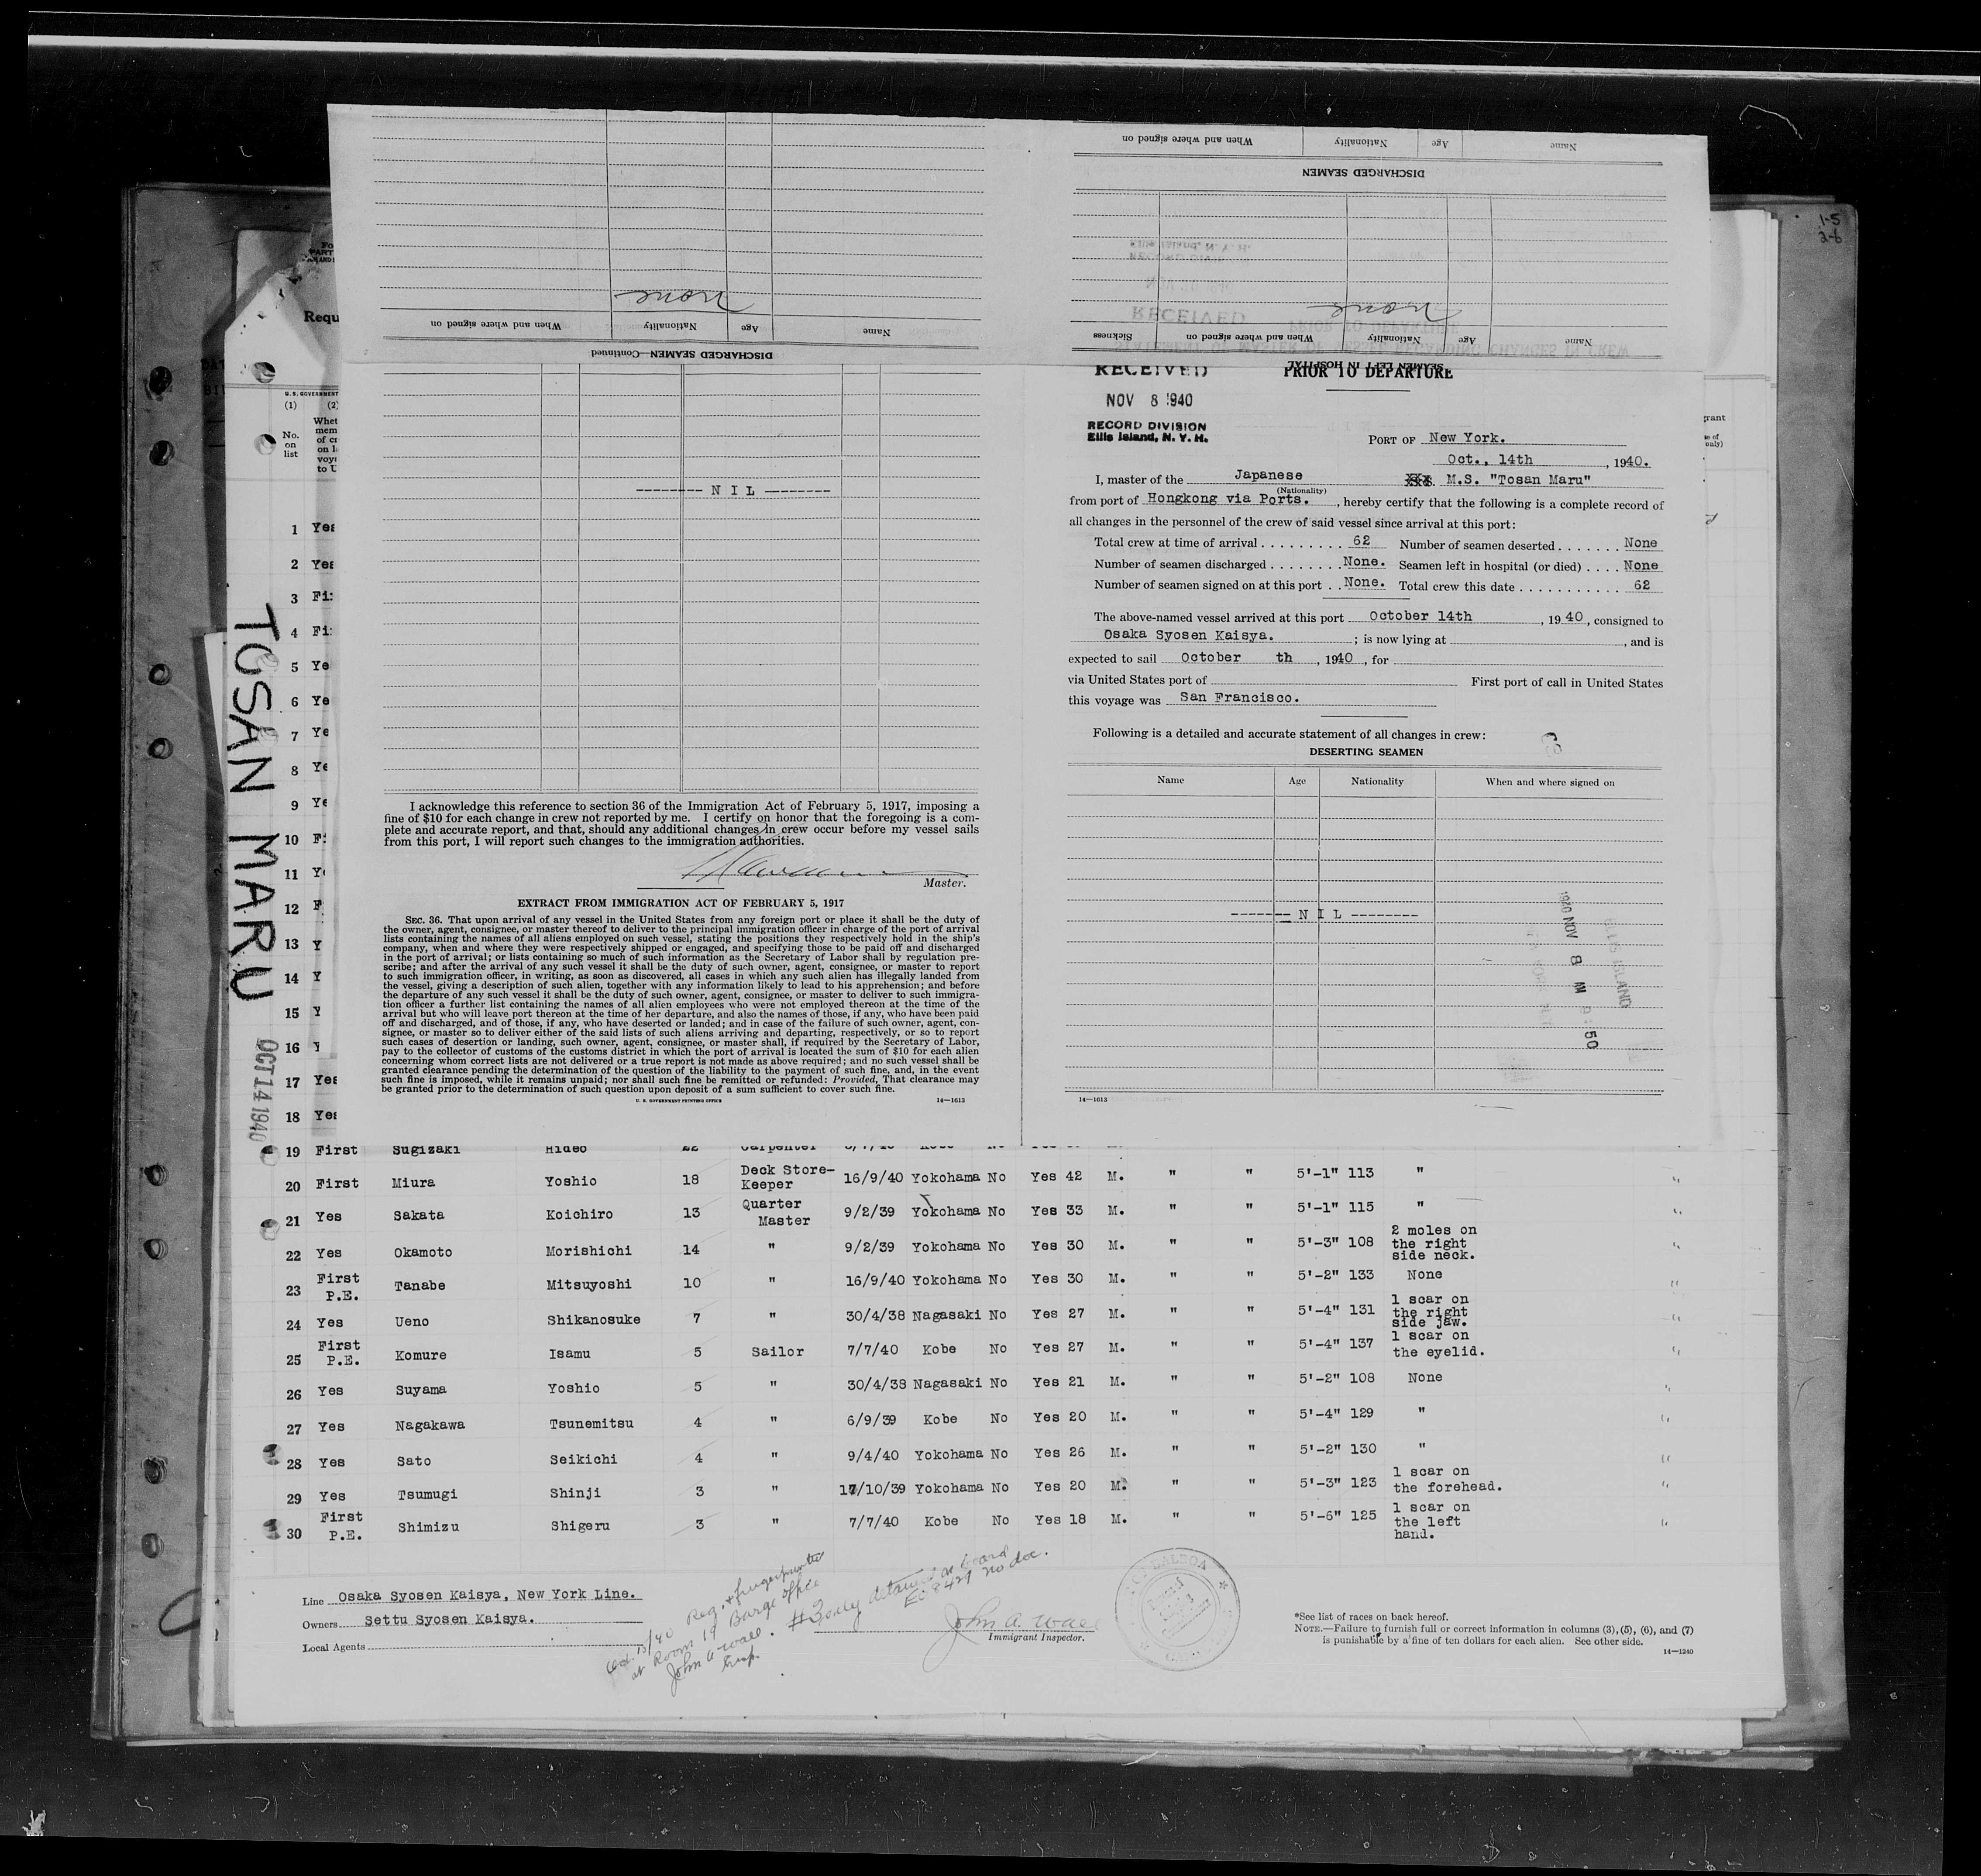 1-5
2-6
When and where signed on
Nationality
Age
Name
DISCHARGED SEAMEN
none
none
When and where signed on
Nationality
Age
Name
Sickness
When and where signed on
Nationality
Age
Name
DISCHARGED SEAMEN—Continued
SEAMEN LEFT IN HOSPITAL
Requ
RECEIVED
PRIOR TO DEPARTURE
NOV 8 1940
RECORD DIVISION
Ellis Island, N. Y. H.
PORT OF New York.
Oct., 14th, 1940.
I, master of the Japanese M.S. "Tosan Maru"
(Nationality)
from port of Hongkong via Ports., hereby certify that the following is a complete record of
all changes in the personnel of the crew of said vessel since arrival at this port:
Total crew at time of arrival . . . . . . . . . 62 Number of seamen deserted . . . . . . . None
Number of seamen discharged . . . . . . . . None. Seamen left in hospital (or died) . . . . None
Number of seamen signed on at this port . . None. Total crew this date . . . . . . . . . . . 62
The above-named vessel arrived at this port October 14th, 1940, consigned to
Osaka Syosen Kaisya. ; is now lying at , and is
expected to sail October th, 1940, for
via United States port of First port of call in United States
this voyage was San Francisco.
Following is a detailed and accurate statement of all changes in crew:
DESERTING SEAMEN
Name Age Nationality When and where signed on
------- N I L --------
1940 NOV 8 AM 8:50
ELLIS ISLAND
14—1613
-------- N I L --------
I acknowledge this reference to section 36 of the Immigration Act of February 5, 1917, imposing a
fine of $10 for each change in crew not reported by me. I certify on honor that the foregoing is a com-
plete and accurate report, and that, should any additional changes in crew occur before my vessel sails
from this port, I will report such changes to the immigration authorities.
Master.
EXTRACT FROM IMMIGRATION ACT OF FEBRUARY 5, 1917
SEC. 36. That upon arrival of any vessel in the United States from any foreign port or place it shall be the duty of
the owner, agent, consignee, or master thereof to deliver to the principal immigration officer in charge of the port of arrival
lists containing the names of all aliens employed on such vessel, stating the positions they respectively hold in the ship's
company, when and where they were respectively shipped or engaged, and specifying those to be paid off and discharged
in the port of arrival; or lists containing so much of such information as the Secretary of Labor shall by regulation pre-
scribe; and after the arrival of any such vessel it shall be the duty of such owner, agent, consignee, or master to report
to such immigration officer, in writing, as soon as discovered, all cases in which any such alien has illegally landed from
the vessel, giving a description of such alien, together with any information likely to lead to his apprehension; and before
the departure of any such vessel it shall be the duty of such owner, agent, consignee, or master to deliver to such immigra-
tion officer a further list containing the names of all alien employees who were not employed thereon at the time of the
arrival but who will leave port thereon at the time of her departure, and also the names of those, if any, who have been paid
off and discharged, and of those, if any, who have deserted or landed; and in case of the failure of such owner, agent, con-
signee, or master so to deliver either of the said lists of such aliens arriving and departing, respectively, or so to report
such cases of desertion or landing, such owner, agent, consignee, or master shall, if required by the Secretary of Labor,
pay to the collector of customs of the customs district in which the port of arrival is located the sum of $10 for each alien
concerning whom correct lists are not delivered or a true report is not made as above required; and no such vessel shall be
granted clearance pending the determination of the question of the liability to the payment of such fine, and, in the event
such fine is imposed, while it remains unpaid; nor shall such fine be remitted or refunded: Provided, That clearance may
be granted prior to the determination of such question upon deposit of a sum sufficient to cover such fine.
U. S. GOVERNMENT PRINTING OFFICE 14—1613
TOSAN MARU
OCT 14 1940
U. S. GOVERNMENT
(1) (2)
No. on list
1 Yes
2 Yes
3 Fi
4 Fi
5 Ye
6 Ye
7 Ye
8 Ye
9 Ye
10 F
11 Y
12 F
13 Y
14 Y
15 Y
16 Y
17 Yes
18 Yes
19 First Sugizaki Hideo 22 Carpenter
20 First Miura Yoshio 18 Deck Store-Keeper 16/9/40 Yokohama No Yes 42 M. " " 5'-1" 113 "
21 Yes Sakata Koichiro 13 Quarter Master 9/2/39 Yokohama No Yes 33 M. " " 5'-1" 115 "
22 Yes Okamoto Morishichi 14 " 9/2/39 Yokohama No Yes 30 M. " " 5'-3" 108 2 moles on the right side neck.
23 First P.E. Tanabe Mitsuyoshi 10 " 16/9/40 Yokohama No Yes 30 M. " " 5'-2" 133 None
24 Yes Ueno Shikanosuke 7 " 30/4/38 Nagasaki No Yes 27 M. " " 5'-4" 131 1 scar on the right side jaw.
25 First P.E. Komure Isamu 5 Sailor 7/7/40 Kobe No Yes 27 M. " " 5'-4" 137 1 scar on the eyelid.
26 Yes Suyama Yoshio 5 " 30/4/38 Nagasaki No Yes 21 M. " " 5'-2" 108 None
27 Yes Nagakawa Tsunemitsu 4 " 6/9/39 Kobe No Yes 20 M. " " 5'-4" 129 "
28 Yes Sato Seikichi 4 " 9/4/40 Yokohama No Yes 26 M. " " 5'-2" 130 "
29 Yes Tsumugi Shinji 3 " 17/10/39 Yokohama No Yes 20 M. " " 5'-3" 123 1 scar on the forehead.
30 First P.E. Shimizu Shigeru 3 " 7/7/40 Kobe No Yes 18 M. " " 5'-6" 125 1 scar on the left hand.
Line Osaka Syosen Kaisya, New York Line.
Owners Settu Syosen Kaisya.
Local Agents
Oct. 15/40 Reg. & fingerprinted
at Room 19 Barge Office
John A Wall.
Insp.
#3 only detained on board
no doc.
John A. Wall
Immigrant Inspector.
BALBOA
*See list of races on back hereof.
NOTE.—Failure to furnish full or correct information in columns (3), (5), (6), and (7)
is punishable by a fine of ten dollars for each alien. See other side.
14—1240